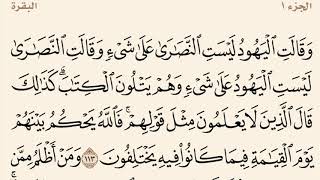 الجزء ١
البقرة
وَقَالَتِ الْيَهُودُ لَيْسَتِ النَّصَارَىٰ عَلَىٰ شَيْءٍ وَقَالَتِ النَّصَارَىٰ
لَيْسَتِ الْيَهُودُ عَلَىٰ شَيْءٍ وَهُمْ يَتْلُونَ الْكِتَابَ ۗ كَذَٰلِكَ
قَالَ الَّذِينَ لَا يَعْلَمُونَ مِثْلَ قَوْلِهِمْ ۚ فَاللَّهُ يَحْكُمُ بَيْنَهُمْ
يَوْمَ الْقِيَامَةِ فِيمَا كَانُوا فِيهِ يَخْتَلِفُونَ ١١٣ وَمَنْ أَظْلَمُ مِمَّن